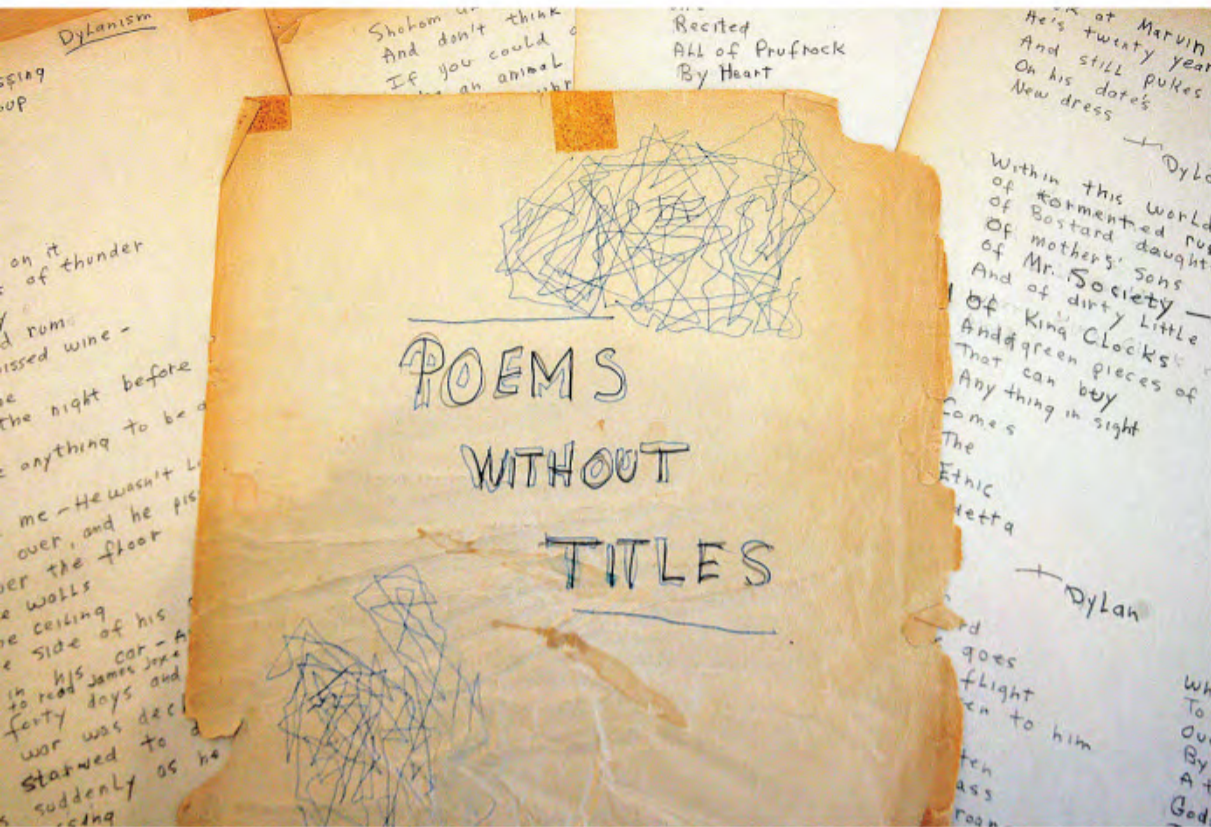 Dylanism
ssing
oup
on it
of thunder
rum
issed wine -
the night before
anything to be a
me - He wasn't L
over, and he pis
er the floor
walls
ceiling
side of his
in his car - A
to read James Joyce
forty days and
war was decl
starved to d
suddenly as he
ssing
Sholom
And don't think
If you could
an animal
Recited
All of Prufrock
By Heart
POEMS
WITHOUT
TITLES
at Marvin
He's twenty year
And still pukes
On his date's
New dress
Dyla
Within this world
of tormented rus
of Bastard daught
Of mothers' sons
of Mr. Society —
And of dirty Little
Of King Clocks
And green pieces of
That can buy
Any thing in sight
Comes
The
Etnic
detta
Dylan
rd
goes
flight
en to him
ten
ass
roar
Wh
To
Ou
By
A t
God